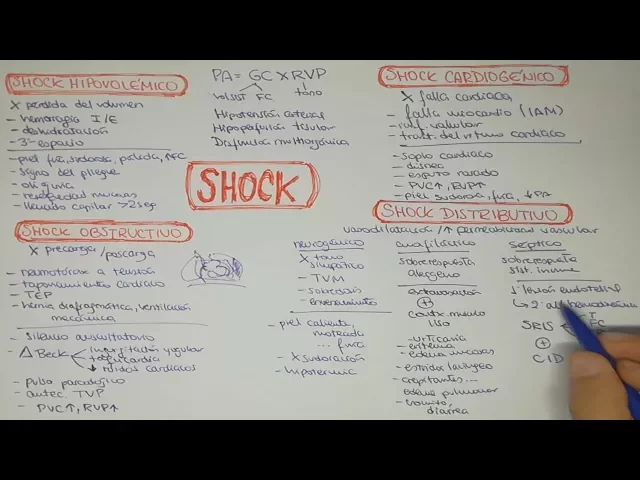 SHOCK HIPOVOLÉMICO
X pérdida del volumen
- hemorragia I/E
- deshidratación
- 3er espacio
- piel fría, sudorosa, pálida, ↑FC
- signo del pliegue
- oliguria
- resequedad mucosas
- llenado capilar >2seg
SHOCK OBSTRUCTIVO
X precarga/poscarga
- neumotórax a tensión
- taponamiento cardiaco
- TEP
- hernia diafragmática, ventilación
mecánica
- silencio auscultatorio
- Δ Beck
ingurgitación yugular
↓ ruidos cardiacos
- pulso paradójico
- antec. TVP
- PVC↑, RVP↑
PA= GC X RVP
volsist FC tono
Hipotensión arterial
Hipoperfusión tisular
Disfunción multiorgánica
SHOCK
SHOCK CARDIOGÉNICO
X falla cardiaca
- falla miocardio (IAM)
- insuf. valvular
- trast. del ritmo cardiaco
- soplo cardiaco
- disnea
- esputo rosado
- PVC↑, RVP↑
- piel sudorosa, fría, ↓PA
SHOCK DISTRIBUTIVO
vasodilatación /↑ permeabilidad vascular
neurogénico
X tono
simpático
- TVM
- sobredosis
- envenenamiento
- piel caliente,
moteada
... fría
X sudoración
- hipotermia
anafiláctico
sobrerespuesta
alergeno
extravasación
+
contx. musculo
liso
- urticaria
- eritema
- edema mucosas
- estridor laríngeo
- crepitantes...
edema pulmonar
- vómito,
diarrea
séptico
sobrerespuesta
sist. inmune
1° lesión endotelial
↳ 2°
SRIS
T
FC
+
CID